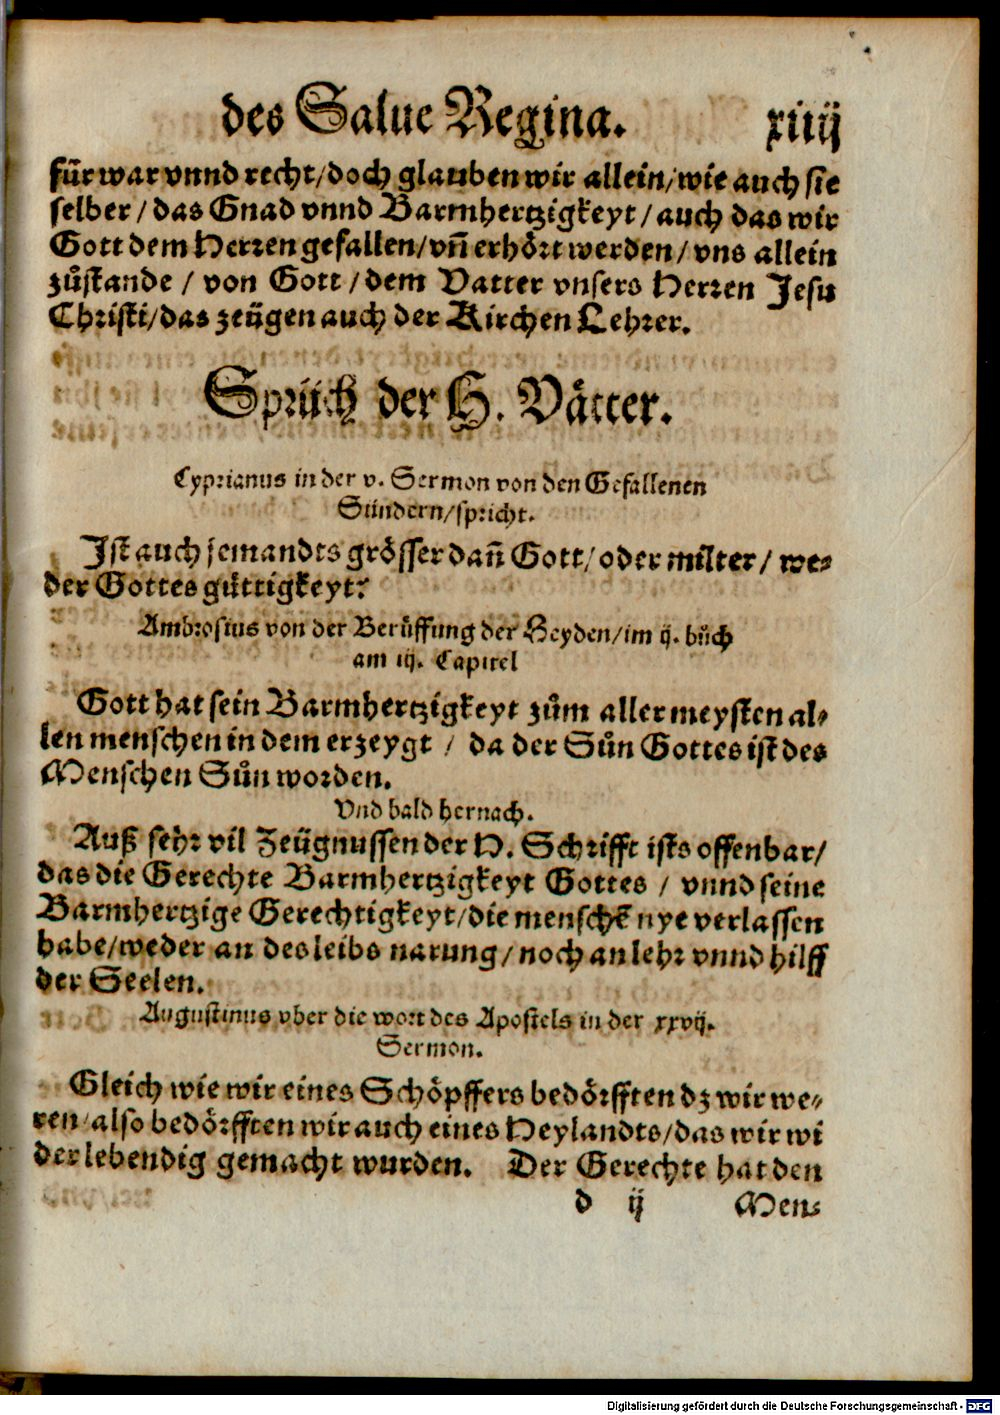 des Salue Regina. xiiij
für war vnnd recht/doch glauben wir allein/wie auch sie
selber / das Gnad vnnd Barmhertzigkeyt / auch das wir
Gott dem Herren gefallen/vn̄ erhoͤrt werden / vns allein
zuͦstande / von Gott / dem Vatter vnsers Herren Jesu
Christi/das zeügen auch der Kirchen Lehrer.
Sprüch der H. Vaͤtter.
Cyprianus in der v. Sermon von den Gefallenen
Sündern/spricht.
Ist auch jemandts groͤsser dan̄ Gott/ oder milter / we-
der Gottes guͤttigkeyt?
Ambrosius von der Beruͤffung der Heyden/im ij. buͦch
am iij. Capitel
Gott hat sein Barmhertzigkeyt zuͦm aller meysten al-
len menschen in dem erzeygt / da der Suͦn Gottes ist des
Menschen Suͦn worden.
Vnd bald hernach.
Auß sehr vil Zeügnussen der H. Schrifft ists offenbar/
das die Gerechte Barmhertzigkeyt Gottes / vnnd seine
Barmhertzige Gerechtigkeyt/die menschē nye verlassen
habe/weder an des leibs narung / noch an lehr vnnd hilff
der Seelen.
Augustinus vber die wort des Apostels in der xxvij.
Sermon.
Gleich wie wir eines Schoͤpffers bedoͤrfften dz wir we-
ren/also bedoͤrfften wir auch eines Heylandts/das wir wi
der lebendig gemacht wurden. Der Gerechte hat den
d ij Men-
Digitalisierung gefördert durch die Deutsche Forschungsgemeinschaft - DFG